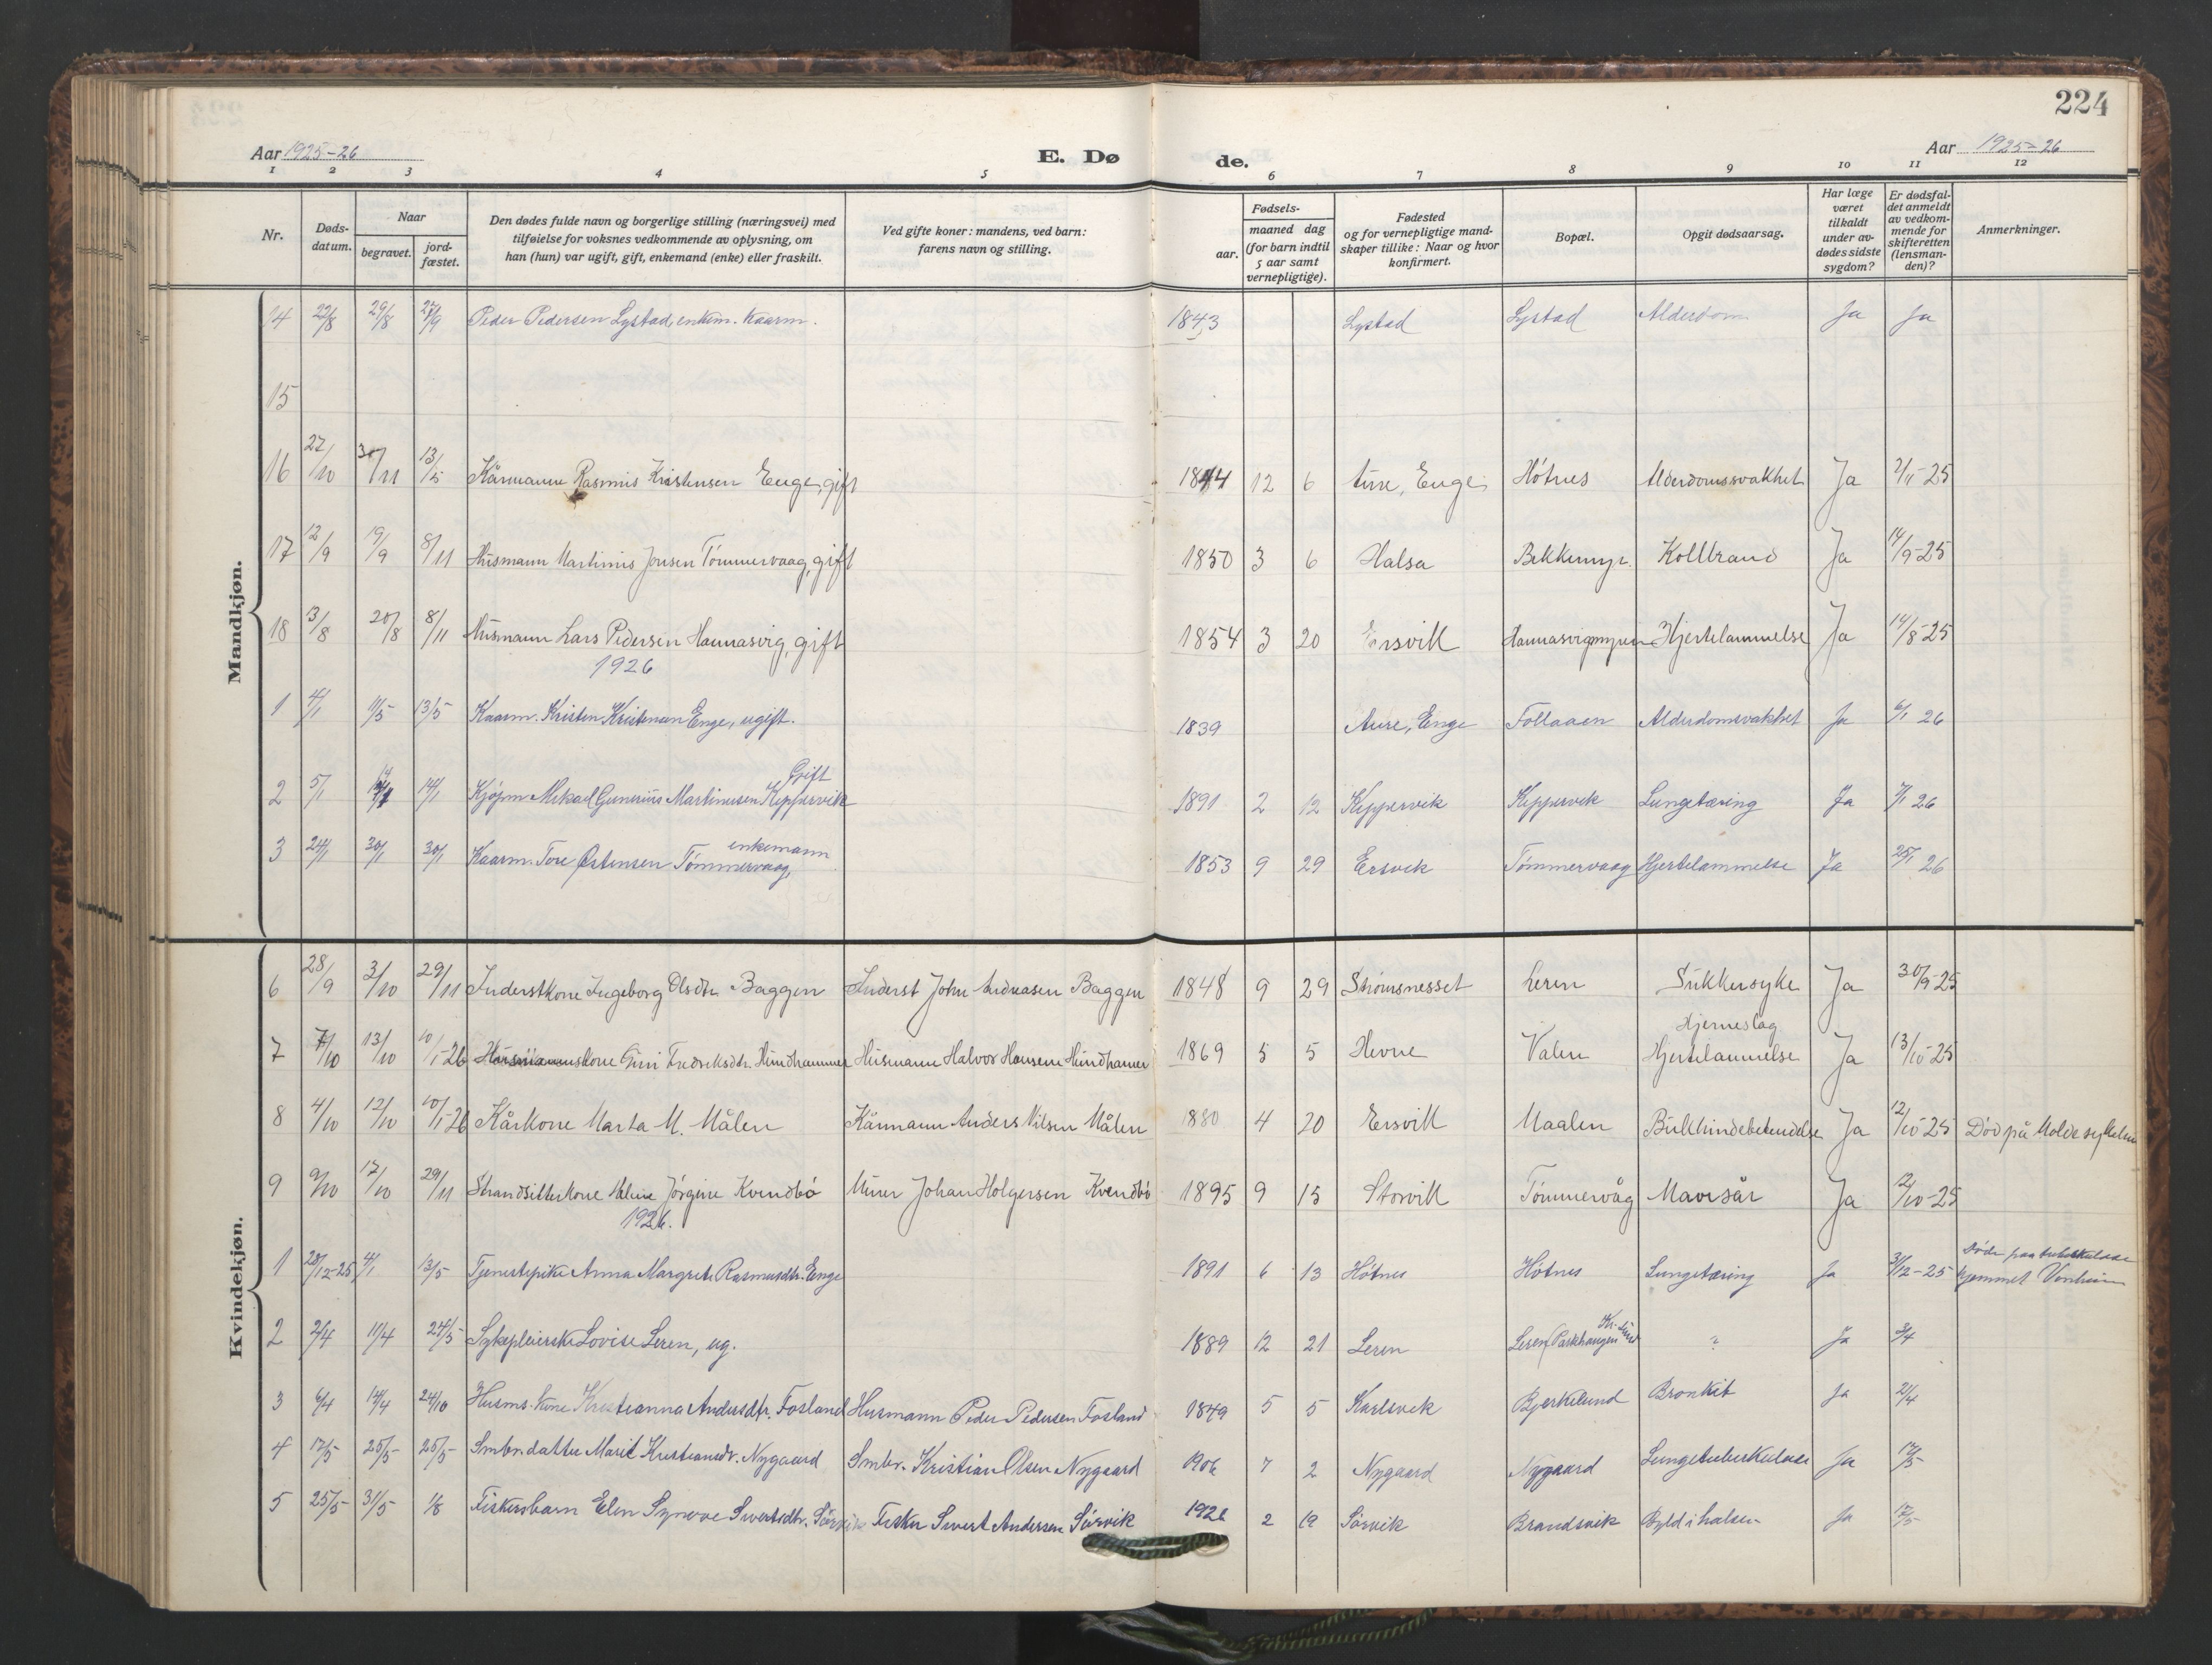 224
Aar 1925-26
E. Dø
de.
Aar 1925-26
1 2 3 4 5 6 7 8 9 10 11 12
Nr.
Døds-
datum.
Naar
begravet.
jord-
fæstet.
Den dødes fulde navn og borgerlige stilling (næringsvei) med
tilføielse for voksnes vedkommende av oplysning, om
han (hun) var ugift, gift, enkemand (enke) eller fraskilt.
Ved gifte koner: mandens, ved barn:
farens navn og stilling.
Fødsels-
aar.
maaned dag
(for barn indtil
5 aar samt
vernepligtige).
Fødested
og for vernepligtige mand-
skaper tillike: Naar og hvor
konfirmert.
Bopæl.
Opgit dødsaarsag.
Har læge
været
tilkaldt
under av-
dødes sidste
sygdom?
Er dødsfal-
det anmeldt
av vedkom-
mende for
skifteretten
(lensman-
den)?
Anmerkninger.
Mandkjøn.
14 22/8 29/8 27/9 Peder Pedersen Lystad, enkem. kaarm. 1843 Lystad Lystad Alderdom Ja Ja
15
16 27/10 30/11 13/5 Kårmann Rasmus Kristensen Enge, gift 1844 12 6 Aure, Enge Hótnes Alderdomssvakhet Ja 2/11-25
17 12/9 19/9 8/11 Husmann Martinus Jonsen Tómmervaag, gift 1850 3 6 Halsa Bekkemyr. Kolbrand Ja 14/9-25
18 13/8 20/8 8/11 Husmann Lars Pedersen Hannasvig, gift 1854 3 20 Ersvik Hannasvigmyren Hjertelammelse Ja 14/8-25
1926
1 4/1 11/5 13/5 Kaarm. Kristen Kristensen Enge, ugift. 1839 Aure, Enge Follaaen Alderdomsvakhet Ja 6/1 26
2 5/1 14/1 Kjøpm Mikael Gunerius Martinusen Keppervik Gift 1891 2 12 Keppervik Keppervik Lungetæring Ja 7/1 26
3 24/1 30/1 30/1 Kaarm. Tore Østensen Tómmervaag, enkemann 1853 9 29 Ersvik Tómmervaag Hjertelammelse Ja 25/1 26
Kvindekjøn.
6 28/9 3/10 29/11 Inderstkone Ingeborg Olsdtr. Baggen Inderst John Andreasen Baggen 1848 9 29 Strómsnesset Leren Sukkersyke Ja 30/9-25
7 7/10 13/10 10/1-26 Husmannskone Guri Fredriksdtr. Hundhammer Husmann Halvor Hansen Hundhamer 1869 5 5 Hevne Valen Hjerneslag Hjertelammelse Ja 13/10-25
8 4/10 12/10 10/1-26 Kårkone Marta M. Målen Kårmann Anders Nilsen Målen 1880 4 20 Ersvik Maalen Bukhindebetendelse Ja 12/10-25 Død på Molde sykehus
9 9/10 17/10 29/11 Strandsitterkone Jórgine Kvendbó Murer Johan Holgersen Kvendbó 1895 9 15 Storvik Tómmervåg Mavesår Ja 12/10-25
1926.
1 28/12-25 4/1 13/5 Tjenestepike Anna Margrete Rasmusdtr. Enge 1891 6 13 Hótnes Hótnes Lungetæring Ja 31/12-25 Døde paa tuberkulose hjemmet
2 2/4 11/4 24/5 Sykepleierske Lovise Leren, ug. 1889 12 21 Leren Leren (Parkhaugen Kr.sund " Ja 3/4
3 6/4 14/4 24/10 Husms. kone Kristianna Andersdtr. Fosland Husmann Peder Pedersen Fosland 1849 5 5 Karlsvik Bjerkelund Bronkit Ja 2/4
4 17/5 25/5 25/5 Smbr. datter Marit Kristiansdr. Nygaard Smbr. Kristian Olsen Nygaard 1906 7 2 Nygaard Nygaard Lungetuberkulose Ja 17/5
5 25/5 31/5 1/8 Fiskersbarn Elen Synove Sivertsdtr. Sórvik Fisker Sivert Andersen Sórvik 1926 2 19 Sórvik Brandsvik Byld i halsen Ja 17/5